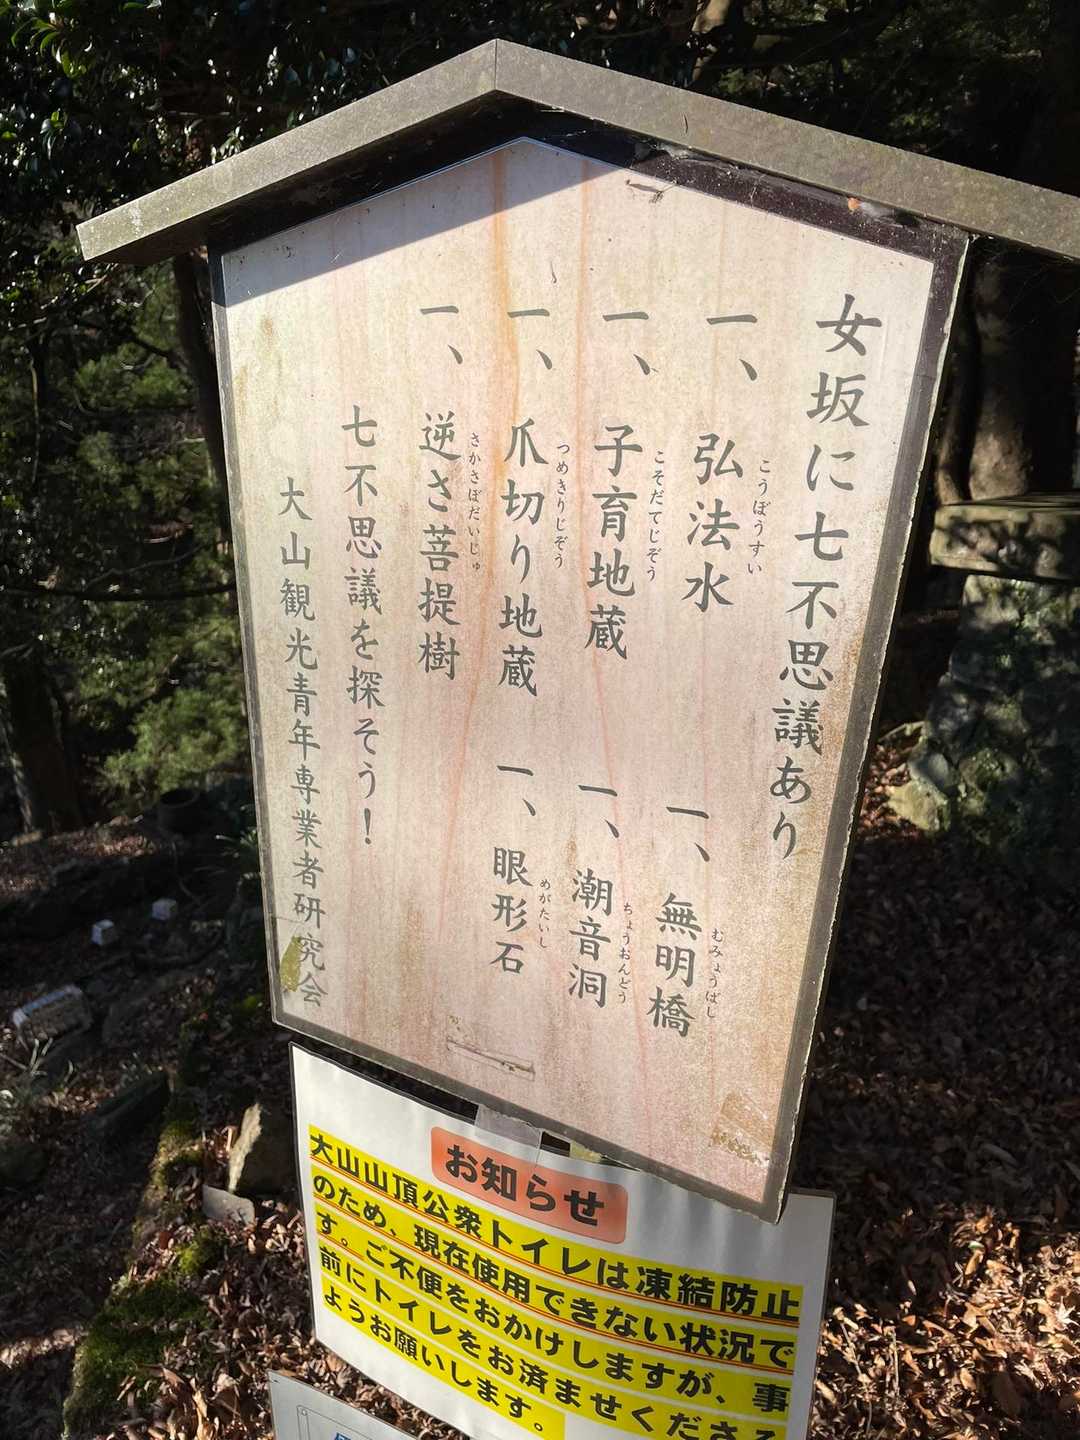 女坂に七不思議あり
一、弘法水
こうぼうすい
一、子育地蔵
こそだてじぞう
一、爪切り地蔵
つめきりじぞう
一、逆さ菩提樹
さかさぼだいじゅ
一、無明橋
むみょうばし
一、潮音洞
ちょうおんどう
一、眼形石
めがたいし
七不思議を探そう！
大山観光青年専業者研究会
お知らせ
大山山頂公衆トイレは凍結防止
のため、現在使用できない状況で
す。ご不便をおかけしますが、事
前にトイレをお済ませくださる
ようお願いします。